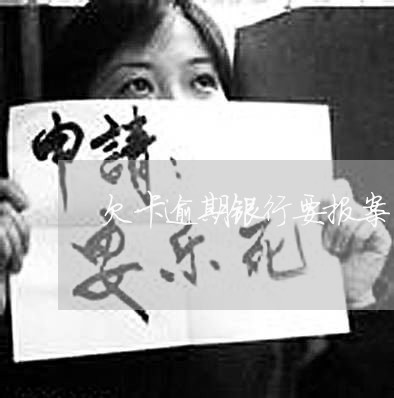 申請：
欠卡逾期银行要报案
安乐死